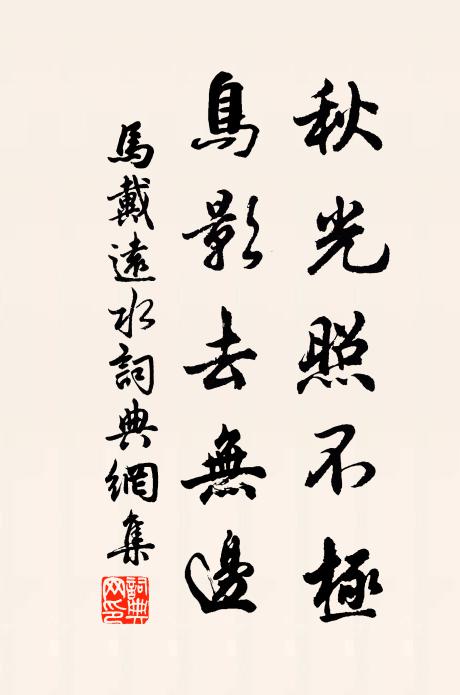 秋光照不極
鳥影去無邊
馬戴遠水詞典網集
詞典網印